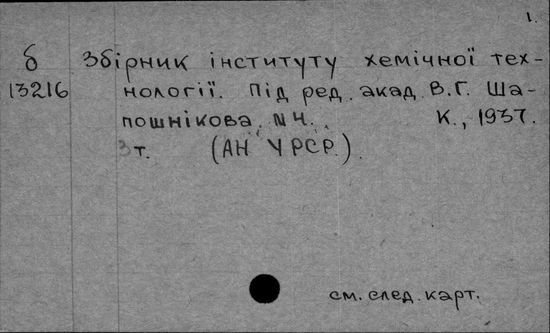 1.
б Збірник інституту хемічної тех-
13216 нології. Під ред. акад. В.Г. Ша-
пошнікова. №4. К., 1937.
3т. (АН УРСР.).
см. след. карт.